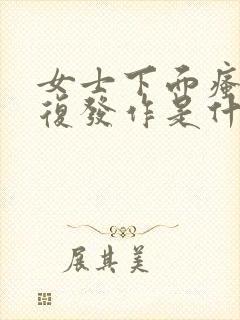 女士下面瘙
復發作是什
展其美